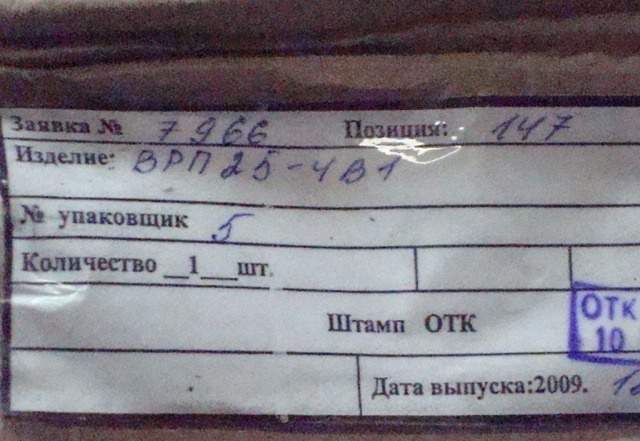 Заявка № 7966 Позиция: 147
Изделие: ВРП 25-4В1
№ упаковщик 5
Количество __1___шт.
Штамп ОТК
ОТК
10
Дата выпуска:2009.